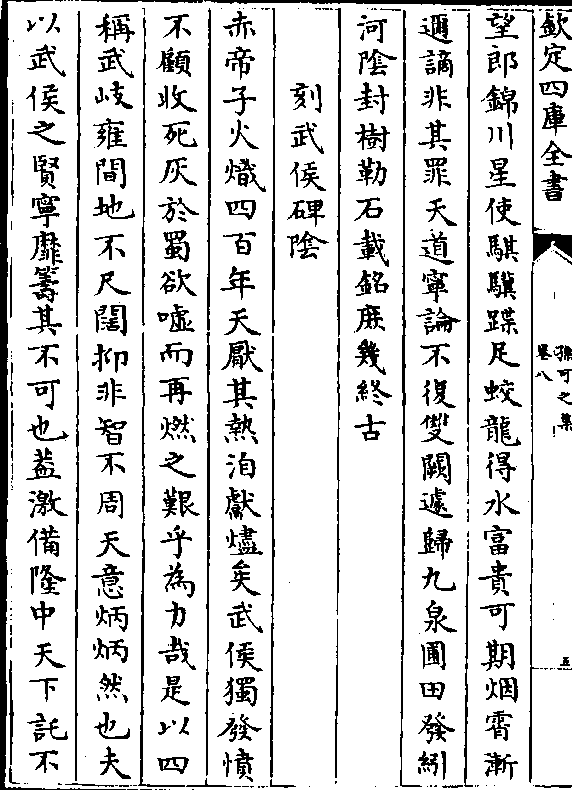 欽定四庫全書
孫可之集
卷八
五
望郎錦川星使騏驥蹀足蛟龍得水富貴可期烟霄漸
邇謫非其罪天道寧論不復雙闕遽歸九泉圃田發紖
河陰封樹勒石載銘庶幾終古
刻武侯碑陰
赤帝子火熾四百年天厭其熱洎獻燼矣武侯獨發憤
不顧收死灰於蜀欲噓而再燃之艱乎為力哉是以四
稱武岐雍間地不尺闊抑非智不周天意炳炳然也夫
以武侯之賢寧靡籌其不可也葢激備隆中天下託不